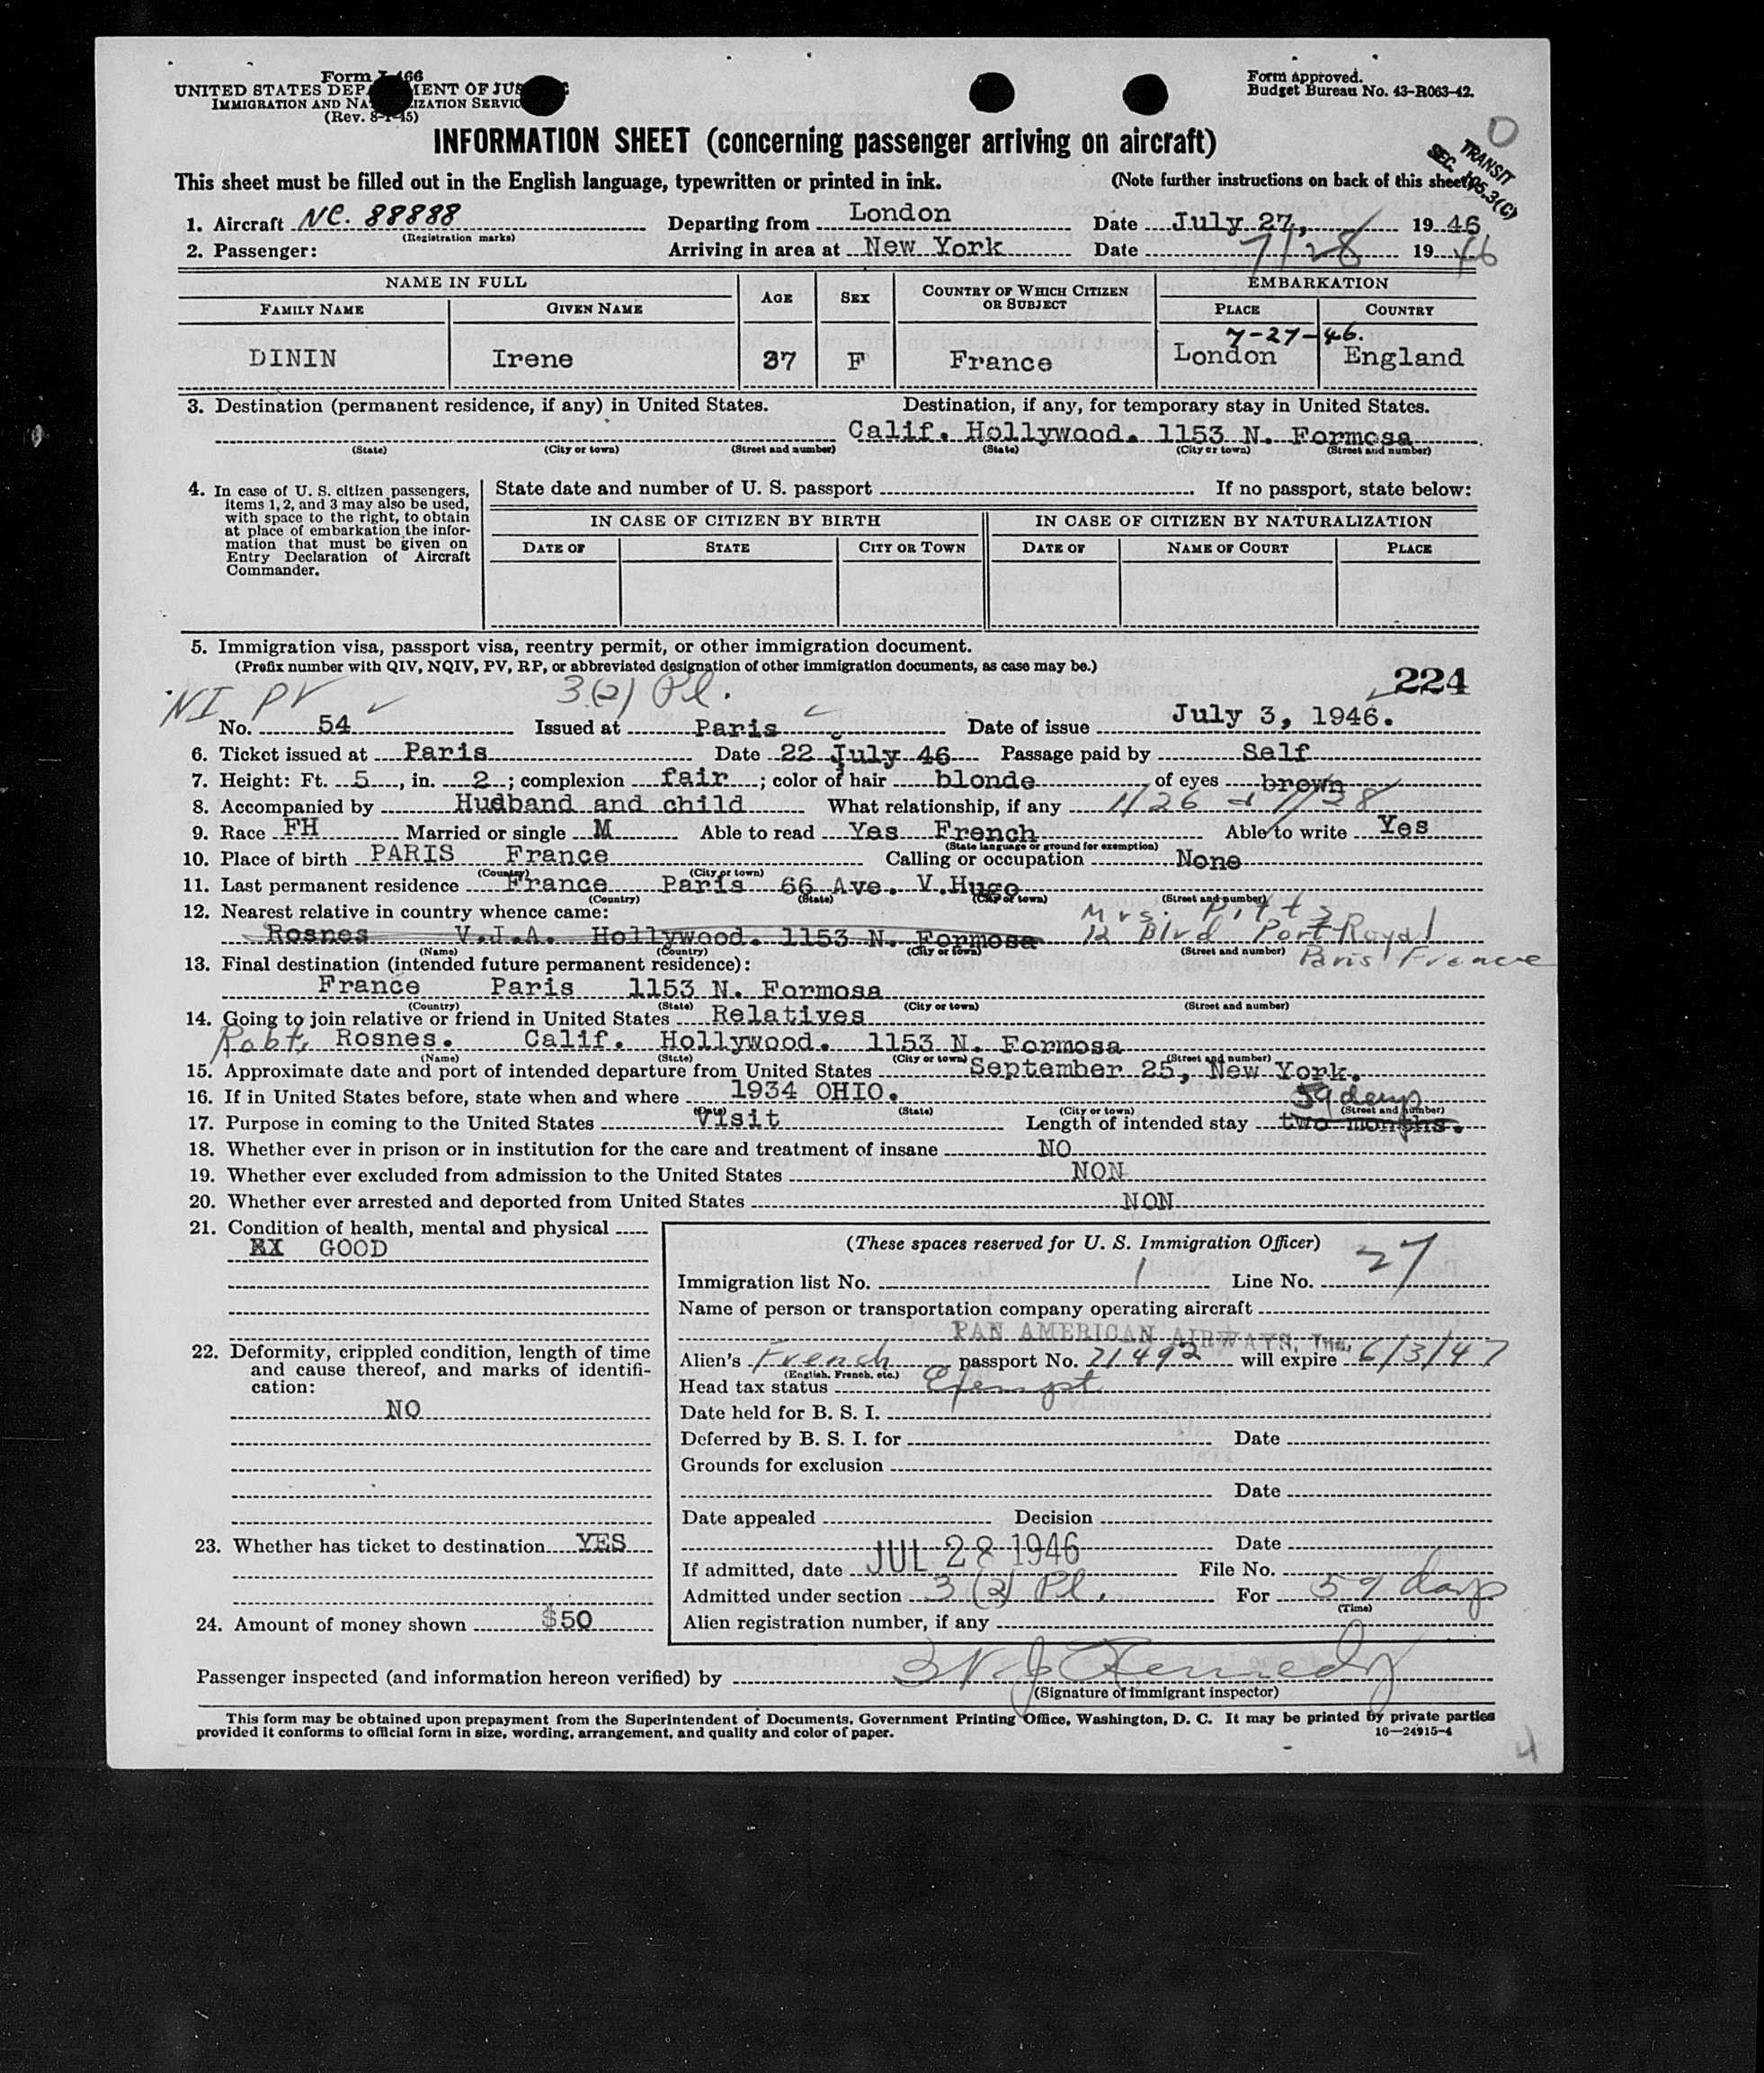 Form I-466
UNITED STATES DEPARTMENT OF JUSTICE
IMMIGRATION AND NATURALIZATION SERVICE
(Rev. 8-1-45)
Form approved.
Budget Bureau No. 43-R063-42.
INFORMATION SHEET (concerning passenger arriving on aircraft)
O
TRANSIT
SEC. 105.3(C)
This sheet must be filled out in the English language, typewritten or printed in ink. (Note further instructions on back of this sheet)
1. Aircraft NC. 88888 Departing from London Date July 27, 19 46
(Registration marks)
2. Passenger: Arriving in area at New York Date 7/28 19 46
NAME IN FULL AGE SEX COUNTRY OF WHICH CITIZEN OR SUBJECT EMBARKATION
FAMILY NAME GIVEN NAME PLACE COUNTRY
7-27-46.
DININ Irene 37 F France London England
3. Destination (permanent residence, if any) in United States. Destination, if any, for temporary stay in United States.
Calif. Hollywood. 1153 N. Formosa
(State) (City or town) (Street and number) (State) (City or town) (Street and number)
4. In case of U. S. citizen passengers, items 1, 2, and 3 may also be used, with space to the right, to obtain at place of embarkation the information that must be given on Entry Declaration of Aircraft Commander.
State date and number of U. S. passport . If no passport, state below:
IN CASE OF CITIZEN BY BIRTH IN CASE OF CITIZEN BY NATURALIZATION
DATE OF STATE CITY OR TOWN DATE OF NAME OF COURT PLACE
5. Immigration visa, passport visa, reentry permit, or other immigration document.
(Prefix number with QIV, NQIV, PV, RP, or abbreviated designation of other immigration documents, as case may be.)
224
NI PV 3(2) Pl.
No. 54 Issued at Paris Date of issue July 3, 1946.
6. Ticket issued at Paris Date 22 July 46 Passage paid by Self
7. Height: Ft. 5, in. 2; complexion fair; color of hair blonde of eyes brown
8. Accompanied by Hudband and child What relationship, if any 1/26 & 1/28
9. Race FH Married or single M Able to read Yes French Able to write Yes
(State language or ground for exemption)
10. Place of birth PARIS France Calling or occupation None
(Country) (City or town)
11. Last permanent residence France Paris 66 Ave. V.Hugo
(Country) (State) (City or town) (Street and number)
12. Nearest relative in country whence came: Mrs. Pitts
Rosnes V.J.A. Hollywood. 1153 N. Formosa 12 Blvd Port Royal
(Name) (Country) (City or town) (Street and number) Paris France
13. Final destination (intended future permanent residence):
France Paris 1153 N. Formosa
(Country) (State) (City or town) (Street and number)
14. Going to join relative or friend in United States Relatives
Robt. Rosnes. Calif. Hollywood. 1153 N. Formosa
(Name) (State) (City or town) (Street and number)
15. Approximate date and port of intended departure from United States September 25, New York.
16. If in United States before, state when and where 1934 OHIO. 59 days
(Date) (State) (City or town) (Street and number)
17. Purpose in coming to the United States Visit Length of intended stay two months.
18. Whether ever in prison or in institution for the care and treatment of insane NO
19. Whether ever excluded from admission to the United States NON
20. Whether ever arrested and deported from United States NON
21. Condition of health, mental and physical
EX GOOD
22. Deformity, crippled condition, length of time and cause thereof, and marks of identification:
NO
23. Whether has ticket to destination YES
24. Amount of money shown $50
(These spaces reserved for U. S. Immigration Officer)
Immigration list No. 1 Line No. 27
Name of person or transportation company operating aircraft
PAN AMERICAN AIRWAYS, Inc.
Alien's French passport No. 21492 will expire 6/3/47
(English, French, etc.)
Head tax status Exempt
Date held for B. S. I.
Deferred by B. S. I. for Date
Grounds for exclusion
Date
Date appealed Decision
Date
If admitted, date JUL 28 1946 File No.
Admitted under section 3 (2) Pl. For 59 days
(Time)
Alien registration number, if any
Passenger inspected (and information hereon verified) by Kennedy
(Signature of immigrant inspector)
This form may be obtained upon prepayment from the Superintendent of Documents, Government Printing Office, Washington, D. C. It may be printed by private parties
provided it conforms to official form in size, wording, arrangement, and quality and color of paper. 16—24915-4
4